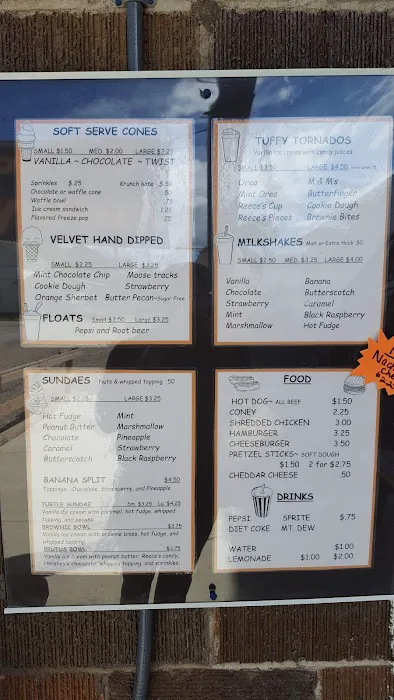 SOFT SERVE CONES
SMALL $1.50 MED $2.00 LARGE $3.25
VANILLA ~ CHOCOLATE ~ TWIST
Sprinkles $.25 Krunch kote $.50
Chocolate or waffle cone .50
Waffle bowl .75
Ice cream sandwich 1.25
Flavored freeze pop .25
VELVET HAND DIPPED
SMALL $2.25 LARGE $3.25
Mint Chocolate Chip Moose tracks
Cookie Dough Strawberry
Orange Sherbet Butter Pecan~Sugar Free
FLOATS Small $2.50 Large $3.25
Pepsi and Root beer
TUFFY TORNADOS
Vanilla ice cream with candy pieces
SMALL $3.50 LARGE $4.50
Oreo M & M's
Mint Oreo Butterfinger
Reece's Cup Cookie Dough
Reece's Pieces Brownie Bites
MILKSHAKES Malt or Extra thick .50
SMALL $2.50 MED $3.25 LARGE $4.00
Vanilla Banana
Chocolate Butterscotch
Strawberry Caramel
Mint Black Raspberry
Marshmallow Hot Fudge
SUNDAES Nuts & whipped topping .50
SMALL $2.25 LARGE $3.25
Hot Fudge Mint
Peanut Butter Marshmallow
Chocolate Pineapple
Caramel Strawberry
Butterscotch Black Raspberry
BANANA SPLIT $4.50
Toppings: Chocolate, Strawberry, and Pineapple
TURTLE SUNDAE Sm. $3.25 La. $4.25
Vanilla ice cream with caramel, hot fudge, whipped
topping, and pecans
BROWNIE BOWL $3.75
Vanilla ice cream with brownie bites, hot fudge, and
whipped topping
BRUTUS BOWL $3.75
Vanilla ice cream with peanut butter, Reece's candy,
Hershey's chocolate, whipped topping, and sprinkles.
FOOD
HOT DOG~ ALL BEEF $1.50
CONEY 2.25
SHREDDED CHICKEN 3.00
HAMBURGER 3.25
CHEESEBURGER 3.50
PRETZEL STICKS~ SOFT DOUGH
$1.50 2 for $2.75
CHEDDAR CHEESE .50
DRINKS
PEPSI SPRITE $.75
DIET COKE MT. DEW
WATER $1.00
LEMONADE $1.00 $2.00